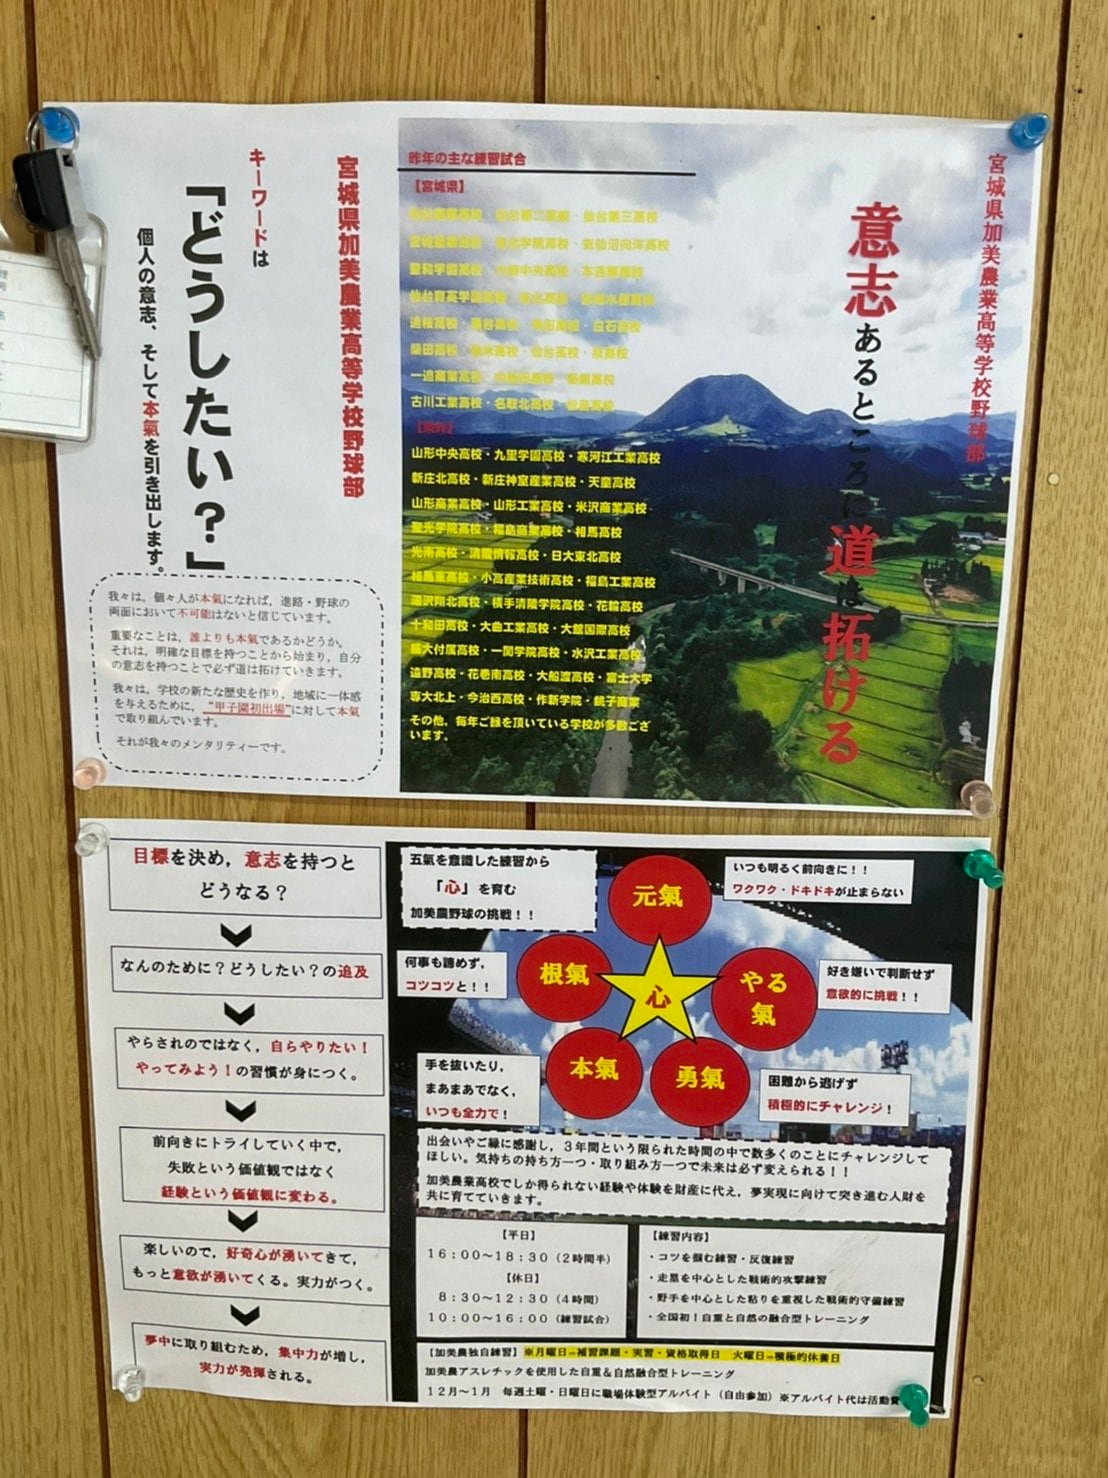 宮城県加美農業高等学校野球部
意志あるところに道は拓ける
昨年の主な練習試合
【宮城県】
仙台第二高校・仙台第三高校
学院高校・気仙沼向洋高校
聖和学園高校・中央高校・本吉
仙台育英学園高校
迫桜高校・谷高校・白石高校
柴田高校・米高校・仙台高校・泉高校
一迫商業高校
古川工業高校・名取北高校・松島高校
【県外】
山形中央高校・九里学園高校・寒河江工業高校
新庄北高校・新庄神室産業高校・天童高校
山形商業高校・山形工業高校・米沢商業高校
聖光学院高校・福島商業高校・相馬高校
光南高校・清陵情報高校・日大東北高校
相馬東高校・小高産業技術高校・福島工業高校
湯沢翔北高校・横手清陵学院高校・花輪高校
十和田高校・大曲工業高校・大館国際高校
盛大付属高校・一関学院高校・水沢工業高校
遠野高校・花巻南高校・大船渡高校・富士大学
専大北上・今治西高校・作新学院・銚子商業
その他，毎年ご縁を頂いている学校が多数ござ
います。
宮城県加美農業高等学校野球部
キーワードは
「どうしたい？」
個人の意志、そして本氣を引き出します。
我々は，個々人が本氣になれば，進路・野球の
両面において不可能はないと信じています。
重要なことは，誰よりも本氣であるかどうか。
それは，明確な目標を持つことから始まり，自分
の意志を持つことで必ず道は拓けていきます。
我々は，学校の新たな歴史を作り，地域に一体感
を与えるために，“甲子園初出場”に対して本氣
で取り組んでいます。
それが我々のメンタリティーです。
目標を決め，意志を持つと
どうなる？
なんのために？どうしたい？の追及
やらされのではなく，自らやりたい！
やってみよう！の習慣が身につく。
前向きにトライしていく中で，
失敗という価値観ではなく
経験という価値観に変わる。
楽しいので，好奇心が湧いてきて，
もっと意欲が湧いてくる。実力がつく。
夢中に取り組むため，集中力が増し，
実力が発揮される。
五氣を意識した練習から
「心」を育む
加美農野球の挑戦！！
元氣
いつも明るく前向きに！！
ワクワク・ドキドキが止まらない
何事も諦めず，
コツコツと！！
根氣
心
やる
氣
好き嫌いで判断せず
意欲的に挑戦！！
手を抜いたり，
まあまあでなく，
いつも全力で！
本氣
勇氣
困難から逃げず
積極的にチャレンジ！
出会いやご縁に感謝し，３年間という限られた時間の中で数多くのことにチャレンジして
ほしい。気持ちの持ち方一つ・取り組み方一つで未来は必ず変えられる！！
加美農業高校でしか得られない経験や体験を財産に代え，夢実現に向けて突き進む人財を
共に育てていきます。
【平日】
１６：００～１８：３０（２時間半）
【休日】
８：３０～１２：３０（４時間）
１０：００～１６：００（練習試合）
【練習内容】
・コツを掴む練習・反復練習
・走塁を中心とした戦術的攻撃練習
・野手を中心とした粘りを重視した戦術的守備練習
・全国初！自重と自然の融合型トレーニング
【加美農独自練習】※月曜日⇒補習課題・実習・資格取得日　火曜日⇒積極的休養日
加美農アスレチックを使用した自重＆自然融合型トレーニング
１２月～１月　毎週土曜・日曜日に職場体験型アルバイト（自由参加）※アルバイト代は活動費